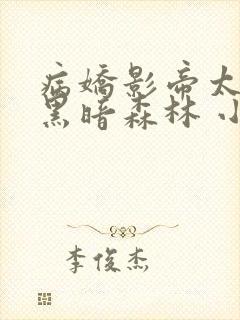 病嬌影帝太
黑暗森林 小
李俊杰